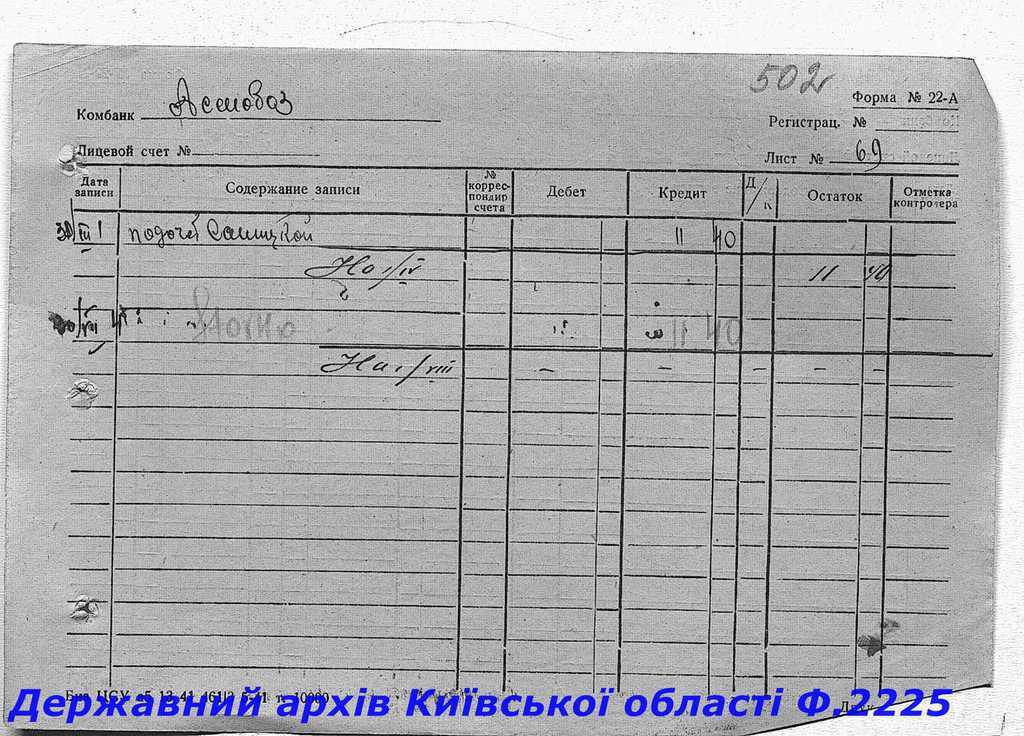 502
Форма № 22-А
Комбанк
Регистрац. №
Лицевой счет №
Лист № 69
Дата записи
Содержание записи
№ коррес-пондир счета
Дебет
Кредит
Д/к
Остаток
Отметка контролера
30/III 1 11 40
На 1/IV 11 40
/VIII сторно 11 40
На 1/VIII – – – – –
ЦСУ 10000
Державний архів Київської області Ф.2225